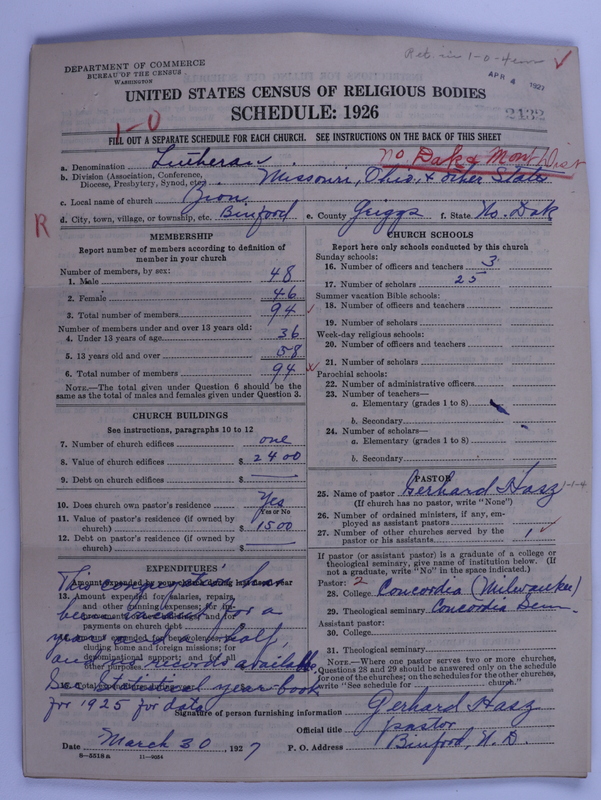 DEPARTMENT OF COMMERCE
BUREAU OF THE CENSUS
WASHINGTON
APR 4 1927
UNITED STATES CENSUS OF RELIGIOUS BODIES
SCHEDULE: 1926
2132
1-0
FILL OUT A SEPARATE SCHEDULE FOR EACH CHURCH. SEE INSTRUCTIONS ON THE BACK OF THIS SHEET
a. Denomination Lutheran
No. Dak & Mont Dist
b. Division (Association, Conference, Diocese, Presbytery, Synod, etc.) Missouri, Ohio, & other State
c. Local name of church Zion
d. City, town, village, or township, etc. Binford e. County Griggs f. State No. Dak
R
MEMBERSHIP
Report number of members according to definition of member in your church
Number of members, by sex:
1. Male 48
2. Female 46
3. Total number of members 94
Number of members under and over 13 years old:
4. Under 13 years of age 36
5. 13 years old and over 58
6. Total number of members 94
NOTE.—The total given under Question 6 should be the same as the total of males and females given under Question 3.
CHURCH BUILDINGS
See instructions, paragraphs 10 to 12
7. Number of church edifices one
8. Value of church edifices $ 2400
9. Debt on church edifices $
10. Does church own pastor's residence Yes
Yes or No
11. Value of pastor's residence (if owned by church) $ 1500
12. Debt on pastor's residence (if owned by church) $
EXPENDITURES
Amount expended by your church during last fiscal year
13. Amount expended for salaries, repairs, and other running expenses; for improvements and for payments on church debt
14. Amount expended for benevolences, including home and foreign missions; for denominational support; and for all other purposes
This congregation has
been vacant for a
year and a half,
and no records available
See Statistical year-book
for 1925 for data
CHURCH SCHOOLS
Report here only schools conducted by this church
Sunday schools:
16. Number of officers and teachers 3
17. Number of scholars 25
Summer vacation Bible schools:
18. Number of officers and teachers
19. Number of scholars
Week-day religious schools:
20. Number of officers and teachers
21. Number of scholars
Parochial schools:
22. Number of administrative officers
23. Number of teachers—
a. Elementary (grades 1 to 8)
b. Secondary
24. Number of scholars—
a. Elementary (grades 1 to 8)
b. Secondary
PASTOR
25. Name of pastor Gerhard Hasz 1-1-4
(If church has no pastor, write "None")
26. Number of ordained ministers, if any, employed as assistant pastors
27. Number of other churches served by the pastor or his assistants 1
If pastor (or assistant pastor) is a graduate of a college or theological seminary, give name of institution below. (If not a graduate, write "No" in the space indicated.)
Pastor: 2
28. College Concordia (Milwaukee)
29. Theological seminary Concordia Sem.
Assistant pastor:
30. College
31. Theological seminary
NOTE.—Where one pastor serves two or more churches, Questions 28 and 29 should be answered only on the schedule for one of the churches; on the schedules for the other churches, write "See schedule for church."
Signature of person furnishing information Gerhard Hasz
Official title pastor
Date March 30 1927 P. O. Address Binford, N. D.
8—5518a 11—9054